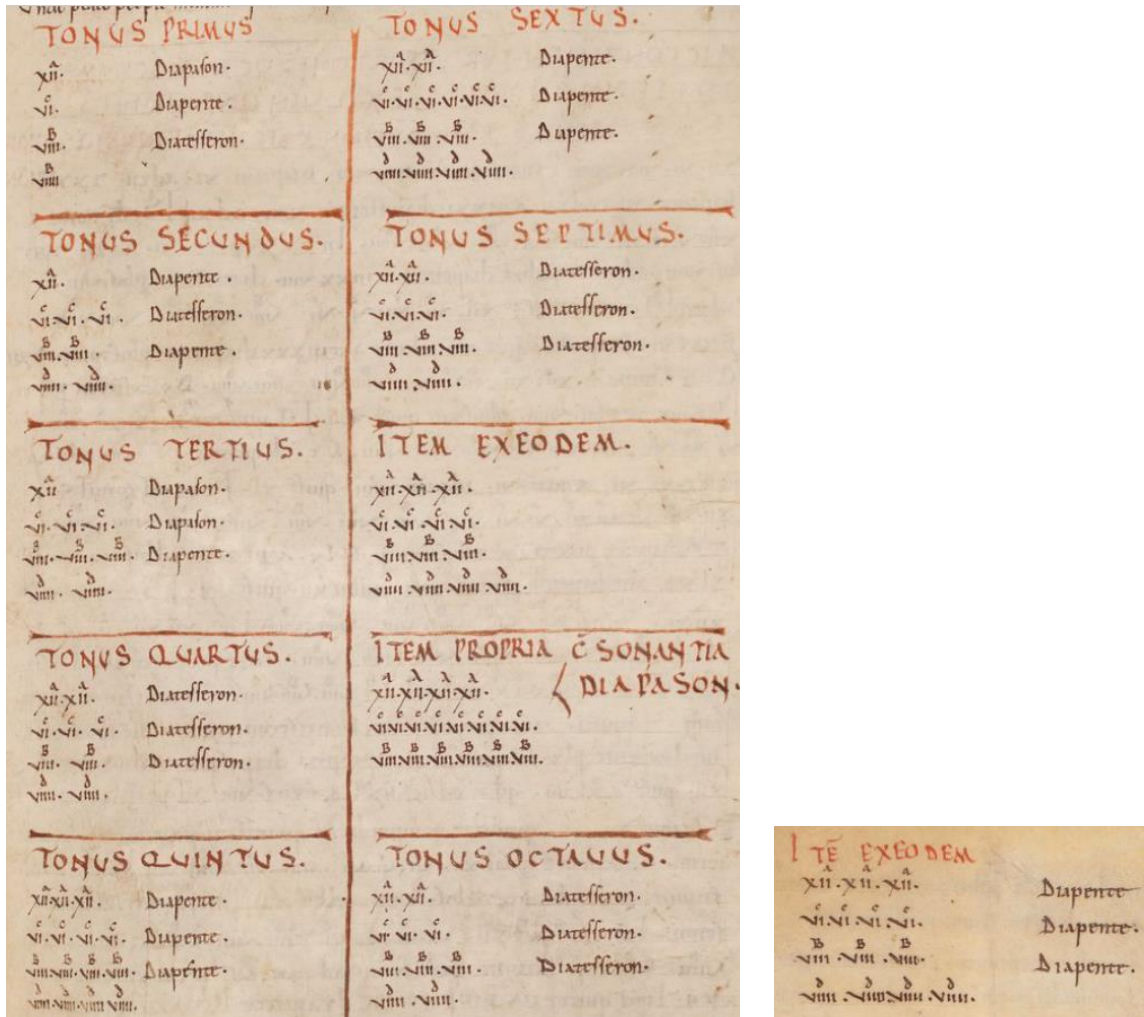 TONUS PRIMUS
A
xii. Diapason.
c
vi. Diapente.
B
viii. Diatesseron.
B
viiii
TONUS SECUNDUS.
A
xii. Diapente.
c c c
vi.vi.vi. Diatesseron.
B B
viii.viii. Diapente.
d d
viiii.viiii.
TONUS TERTIUS.
A
xii Diapason.
c c c
vi.vi.vi. Diapason.
B B B
viii.viii.viii. Diapente.
d d
viiii.viiii.
TONUS QUARTUS.
A A
xii.xii. Diatesseron.
c c c
vi.vi.vi. Diatesseron.
B B
viii.viii. Diatesseron.
d d
viiii.viiii.
TONUS QUINTUS.
A A A
xii.xii.xii. Diapente.
c c c c
vi.vi.vi.vi. Diapente.
B B B B
viii.viii.viii.viii. Diapente.
d d d d
viiii.viiii.viiii.viiii.
TONUS SEXTUS.
A A
xii.xii. Diapente.
c c c c c c
vi.vi.vi.vi.vi.vi. Diapente.
B B B
viii.viii.viii. Diapente.
d d d d
viiii.viiii.viiii.viiii.
TONUS SEPTIMUS.
A A
xii.xii. Diatesseron.
c c c
vi.vi.vi. Diatesseron.
B B B
viii.viii.viii. Diatesseron.
d d
viiii.viiii.
ITEM EXEODEM.
A A A
xii.xii.xii.
c c c c
vi.vi.vi.vi.
B B B
viii.viii.viii.
d d d d
viiii.viiii.viiii.viiii.
ITEM PROPRIA C̄SONANTIA
DIAPASON.
A A A A
xii.xii.xii.xii.
c c c c c c c c
vi.vi.vi.vi.vi.vi.vi.vi.
B B B B B B
viii.viii.viii.viii.viii.viii.
TONUS OCTAUUS.
A A
xii.xii. Diatesseron.
c c c
vi.vi.vi. Diatesseron.
B B B
viii.viii.viii. Diatesseron.
d d
viiii.viiii.
ITĒ EXEODEM
A A A
xii.xii.xii. Diapente
c c c c
vi.vi.vi.vi. Diapente.
B B B
viii.viii.viii. Diapente.
d d d d
viiii.viiii.viiii.viiii.